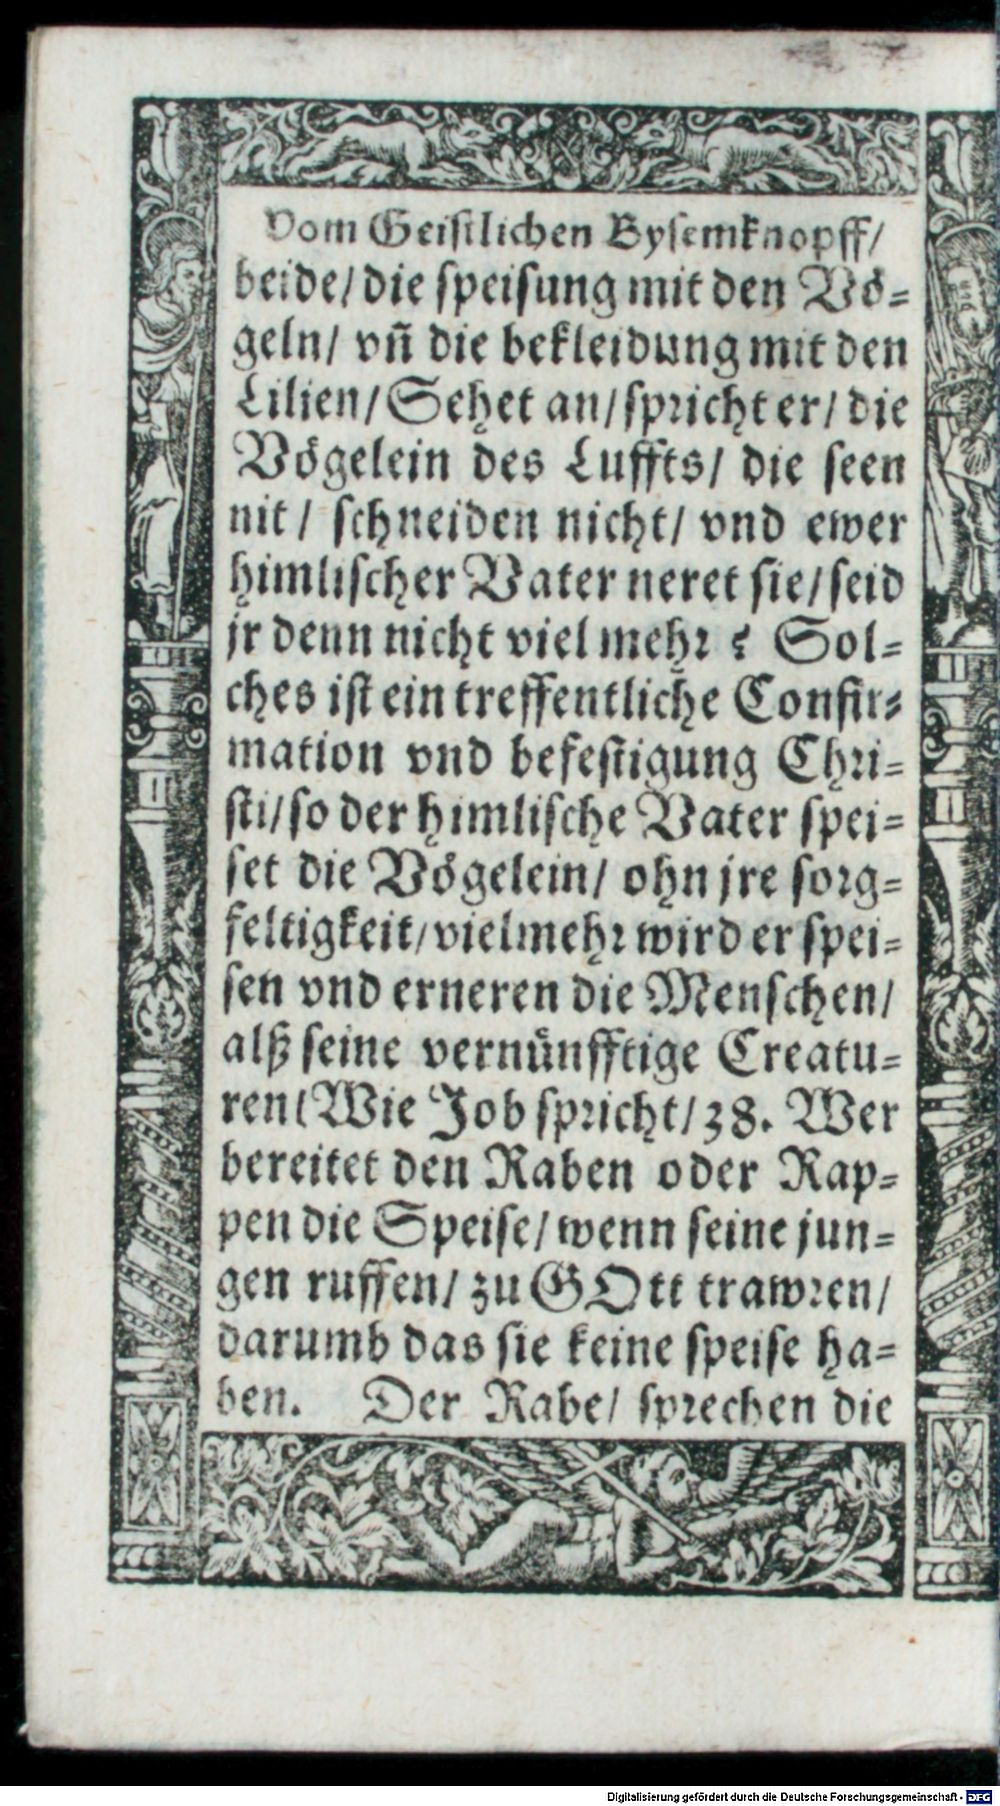 Vom Geistlichen Bysemknopff/
beide/ die speisung mit den Vö-
geln/ vñ die bekleidung mit den
Lilien/ Sehet an/ spricht er/ die
Vögelein des Luffts/ die seen
nit/ schneiden nicht/ vnd ewer
himlischer Vater neret sie/ seid
jr denn nicht viel mehr? Sol-
ches ist ein treffentliche Confir-
mation vnd befestigung Chri-
sti/ so der himlische Vater spei-
set die Vögelein/ ohn jre sorg-
feltigkeit/ vielmehr wird er spei-
sen vnd erneren die Menschen/
alß seine vernünfftige Creatu-
ren/ Wie Job spricht/ 38. Wer
bereitet den Raben oder Rap-
pen die Speise/ wenn seine jun-
gen ruffen/ zu GOtt trawren/
darumb das sie keine speise ha-
ben. Der Rabe/ sprechen die
Digitalisierung gefördert durch die Deutsche Forschungsgemeinschaft - DFG